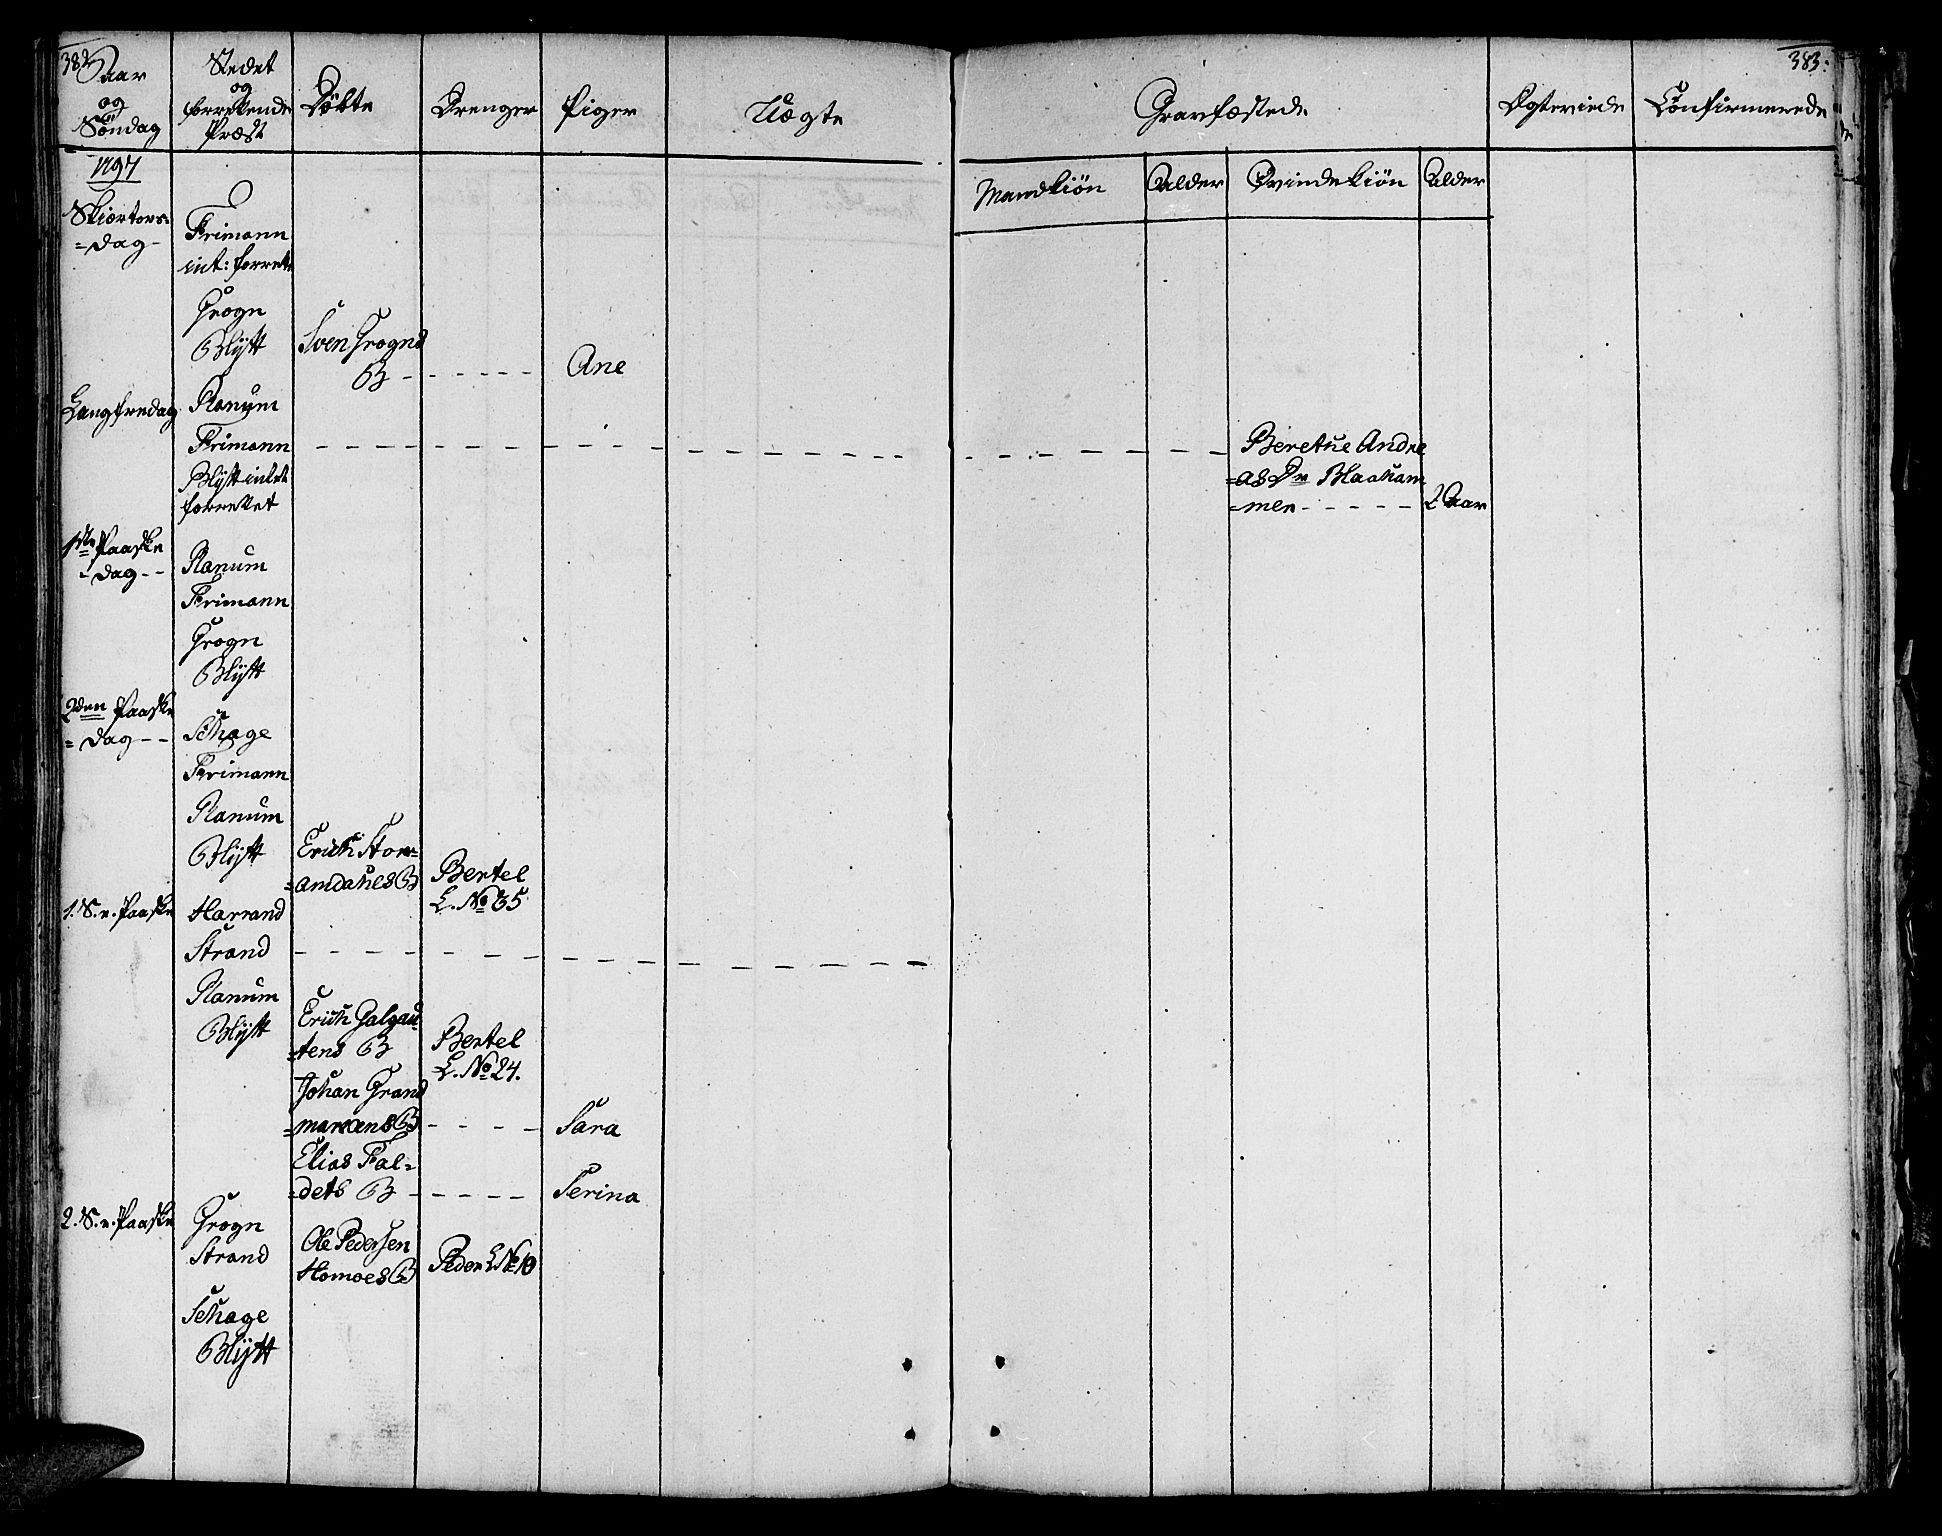 382
383:
Aar
og
Søndag
Stedet
og
forrettende
Præst
Døbte
Drenger
Piger
Uægte
Gravfæstede
Ægteviede
Confirmerede
Mandkiøn
Alder
Qvindekiøn
Alder
1797
Skiertors=
=dag-
Frimann
int: forrett
Grogn
Blÿtt
Sven Grogns
B - - - - - -
Ane
Langfredag
Planum
Frimann
Blÿtt intet
forrettet
Berethe Andre
=as Dr
=men - - - - -
2 Aar
1ste Paaske
=dag--
Planum
Frimann
Grogn
Blÿtt
2den Paaske
=dag--
Schage
Frimann
Planum
Blÿtt
Erich Stor=
=amdahls B
Bertel
L. No 35
1. S. e. Paaske
Harrand
Strand
Planum
Blÿtt
Erich Galgau
=tens B
Bertel
L. No 24.
Johan Grand
B - - - -
Sara
Elias Fal=
=dets B - - - - -
Serina
2. S. e. Paaske
Grogn
Strand
Ole Pedersen
Homoes B
Peder L No 10
Schage
Blÿtt